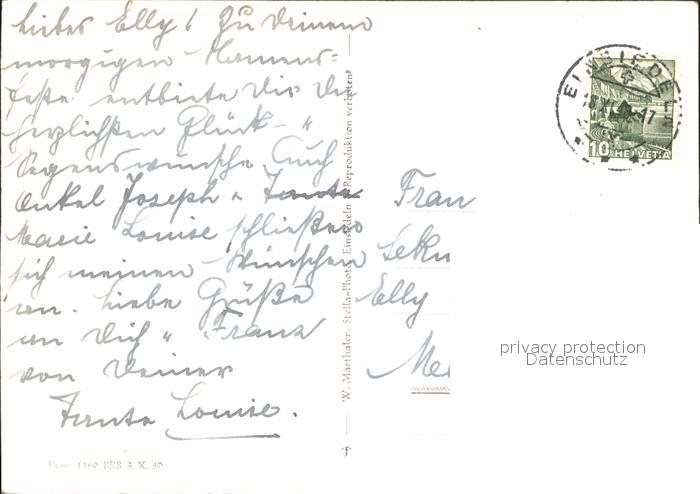 Liebes Elly! Zu Deinem
morgigen Namens-
feste entbiete Dir die
herzlichsten Glück- "
Segenswünsche. Auch
Onkel Joseph u. Tante
Marie Louise schließen
sich meinen Wünschen
an. Liebe Grüße
an Dich " Franz
von Deiner
Tante Louise.
Bew. 1189 BRB 3. X. 39
W. Marthaler, Stella-Photo, Einsiedeln (Reproduktion verboten)
EINSIEDELN
10 HELVETIA
Frau
Seku
Elly
Me
privacy protection
Datenschutz